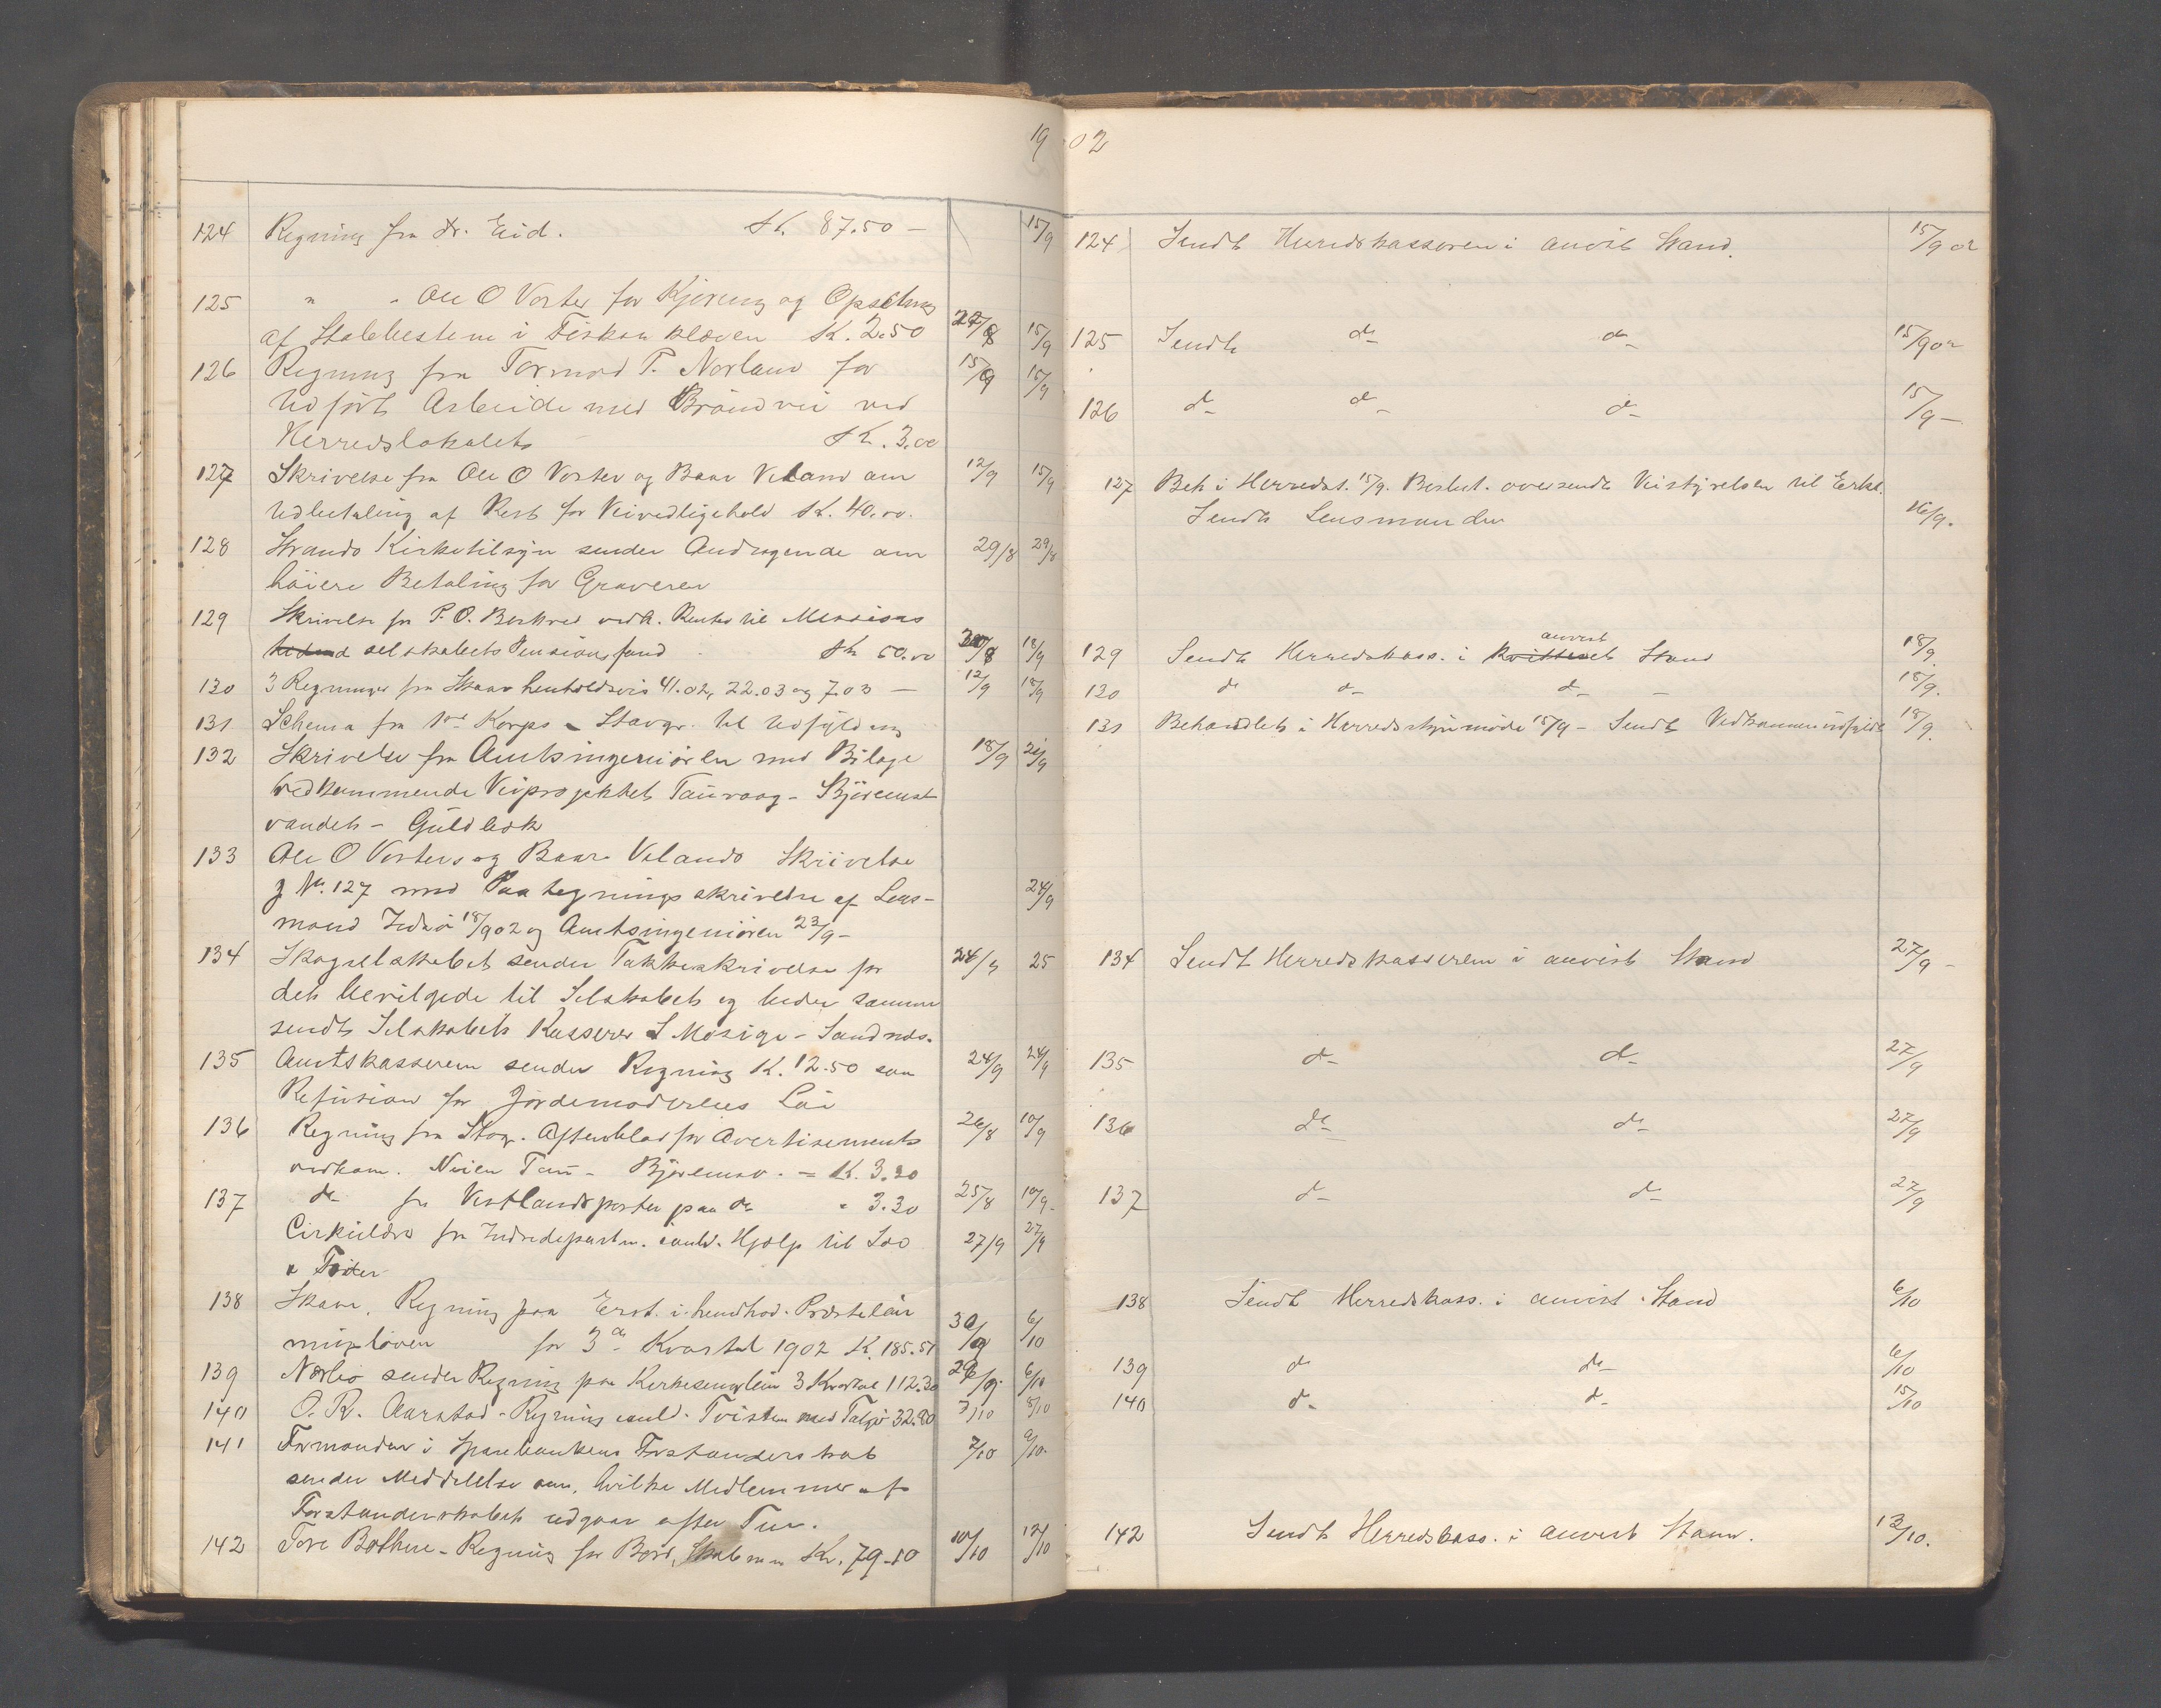 1902
124 Regning fra dr. Eid. Kr. 87.50 — 15/9
125 " " Ole O Vorter for Kjøring og Opsetning
af Stabbestene i Fiskaa kleven K. 2.50 27/8 15/9
126 Regning fra Tormod P. Norland for 15/9 15/9
Udført Arbeide med Brøndvei ved
Herredslokalets Kr. 3.00
127 Skrivelse fra Ole O Vorter og Baar Veland om 12/9 15/9
Udbetaling af Rest for Veivedligehold K. 40.00.
128 Strands Kirketilsyn sender Andragende om 29/8 29/8
höiere Betaling for Graveren
129 Skrivelse fra P. O. Barkved vedk. Renter til Missions
selskabets Pensionsfond Kr 50.00 30/8 18/9
130 3 Regninger fra Skaar henholdsvis 41.02, 22.03 og 7.03 — 12/9 18/9
131 Schema fra Korps Stavgr. til Udfyldning
132 Skrivelse fra Amtsingeniøren med Bilage 18/9 21/9
vedkommende Veiprosjektet Tauvaag - Bjøreimst
vandet - Guldbæk
133 Ole O Vorters og Baar Velands Skrivelse
J No. 127 med Paategningsskrivelse af Lens- 24/9
mand Idsø 18/9 02 og Amtsingeniøren 23/9 -
134 Skogselskabet sender Takkeskrivelse for 24/9 25
det bevilgede til Selskabet og beder samme
sendt Selskabets Kasserer S Mosige - Sandnes.
135 Amtskassereren sender Regning K. 12.50 som 24/9 24/9
Refusion for Jordemoderens Løn
136 Regning fra Stavg. Aftenblad for Avertisements 26/8 10/9
vedkom. Veien Tau - Bjøreimsv. = K. 3.30
137 do fra Vestlandsposten paa do " 3.30 25/8 10/9
Cirkulære fra Indredepartm. Hjælp til 27/9 27/9
138 Skaar. Regning paa Erst. i henhold. Præstelön
for 3die Kvartal 1902 K. 185.51 30/9 6/10
139 Nærbø sender Regning paa Kirkesangerlön 3 Kvartal 112.30 29/9 6/10
140 O. R. Aarstad - Regning Tvisten med Talgø 32.80 7/10 8/10
141 Formanden i Sparebankens Forstanderskab 7/10 9/10
sender Meddelelse om, hvilke Medlemmer af
Forstanderskabet udgaar efter Tur.
142 Tore Bøthun - Regning for Bord, Skab m.m Kr. 79.10 10/10 12/10
124 Sendt Herredskassereren i anvist Stand. 15/9 02
125 Sendt do do 15/9 02
126 do do do 15/9 —
127 Beh i Herredst. 15/9. Beslut. oversendt Veistyrelsen til Erkl.
Sendt Lensmanden 16/9.
129 Sendt Herredskass. i kvitteret anvist Stand 18/9
130 do do do — 18/9.
131 Behandlet i Herredsstyrmøde 15/9 - Sendt Vedkommen udfyldt 18/9.
134 Sendt Herredskassereren i anvist Stand 27/9 -
135 do do 27/9
136 do do 27/9
137 do do 27/9
138 Sendt Herredskass. i anvist Stand 6/10
139 do do 6/10
140 do do 15/10
142 Sendt Herredskass. i anvist Stand. 13/10.